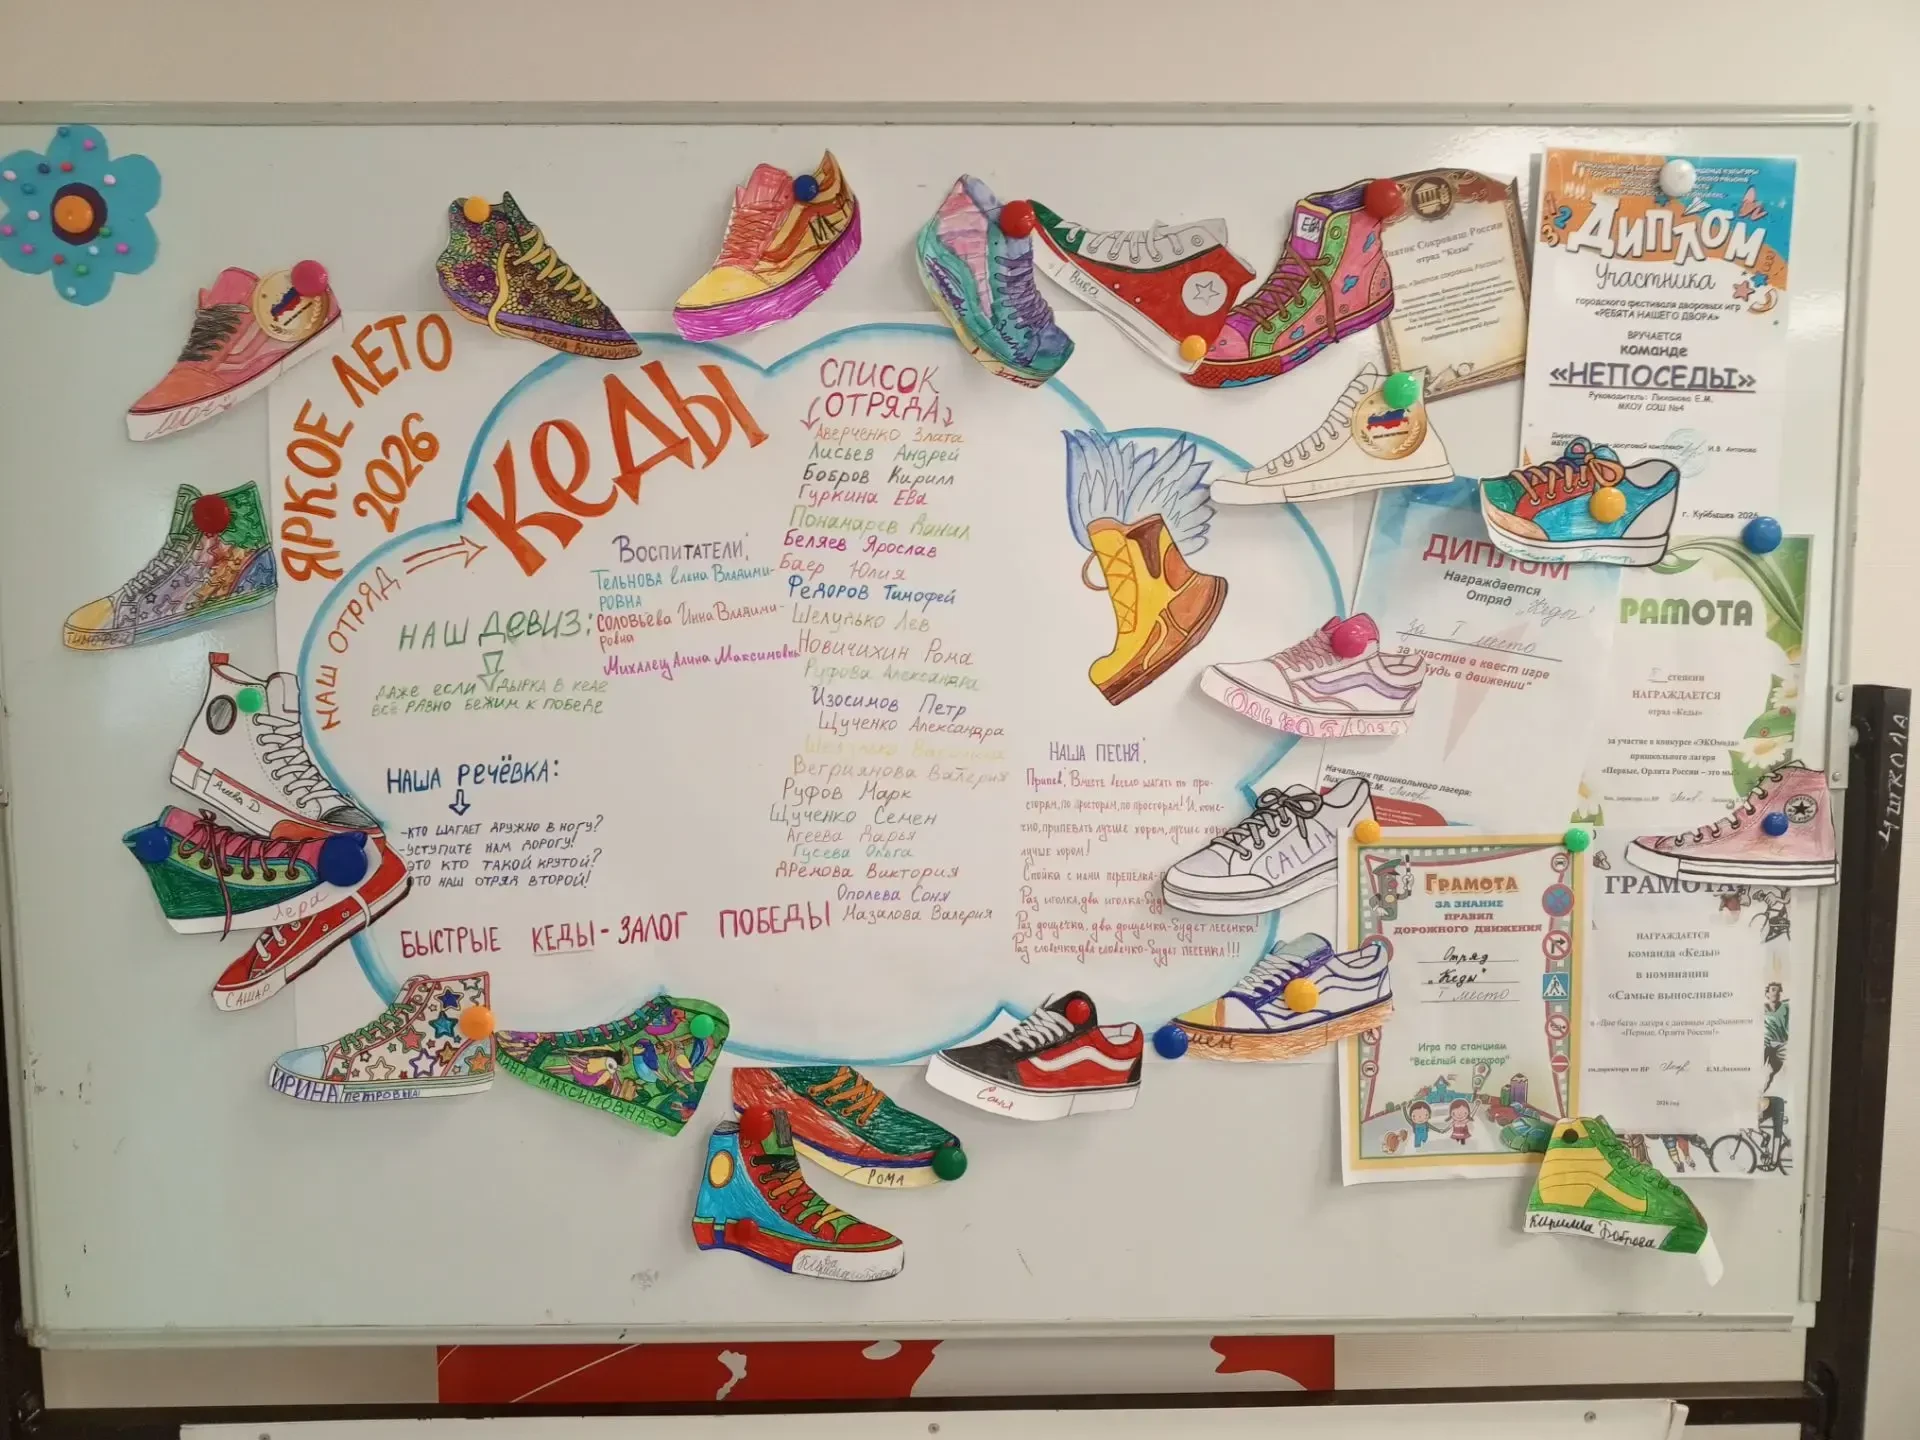 ЯРКОЕ ЛЕТО
2026
НАШ ОТРЯД
КЕДЫ
НАШ ДЕВИЗ:
ДАЖЕ ЕСЛИ ДЫРКА В КЕДЕ
ВСЁ РАВНО БЕЖИМ К ПОБЕДЕ
НАША РЕЧЁВКА:
-КТО ШАГАЕТ ДРУЖНО В НОГУ?
-УСТУПИТЕ НАМ ДОРОГУ!
ЭТО КТО ТАКОЙ КРУТОЙ?
ЭТО НАШ ОТРЯД ВТОРОЙ!
БЫСТРЫЕ КЕДЫ-ЗАЛОГ ПОБЕДЫ
ВОСПИТАТЕЛИ:
ТЕЛЬНОВА ЕЛЕНА ВЛАДИМИ-
РОВНА
СОЛОВЬЕВА ИННА ВЛАДИМИ-
РОВНА
МИХАЛЕЦ АЛИНА МАКСИМОВНА
СПИСОК
ОТРЯДА
АВЕРЧЕНКО ЗЛАТА
ЛИСЬЕВ АНДРЕЙ
БОБРОВ КИРИЛЛ
ГУРКИНА ЕВА
ПОНАМАРЕВ ДАНИЛ
БЕЛЯЕВ ЯРОСЛАВ
БАЕР ЮЛИЯ
ФЕДОРОВ ТИМОФЕЙ
ШЕЛУПЬКО ЛЕВ
НОВИЧИХИН РОМА
РУФОВА АЛЕКСАНДРА
ИЗОСИМОВ ПЕТР
ЩУЧЕНКО АЛЕКСАНДРА
ВЕТРИЯНОВА ВАЛЕРИЯ
РУФОВ МАРК
ЩУЧЕНКО СЕМЕН
АГЕЕВА ДАРЬЯ
ГУСЕВА ОЛЬГА
ДРЕМОВА ВИКТОРИЯ
ОПОЛЕВА СОНЯ
МАЗАЛОВА ВАЛЕРИЯ
НАША ПЕСНЯ:
Припев: Вместе весело шагать по про-
сторам, по просторам, по просторам! И, коне-
чно, припевать лучше хором, лучше хоро
лучше хором!
Спойка с нами перепёлка-
Раз иголка, два иголка-буд
Раз дощечка, два дощечка-будет лесенка!
Раз словечко, два словечко-будет песенка!!!
ЕЛЕНА ВЛАДИМИРОВ
Злата
Вика
ЕВА
ТИМОФЕЙ
Агеева Д
Лера
САШАР.
ИРИНА ПЕТРОВНА
ИНА МАКСИМОВНА
РОМА
Соня
САША
МЕН
Кирилла Боброва
Знаток Сокровищ России
отряд "Кеды"
ДИПЛОМ
Участника
городского фестиваля дворовых игр
«РЕБЯТА НАШЕГО ДВОРА»
ВРУЧАЕТСЯ
команде
«НЕПОСЕДЫ»
Руководитель: Лиханова Е.М.
МКОУ СОШ №4
И.В. Антонова
г. Куйбышев 2026
ДИПЛОМ
Награждается
Отряд „Кеды"
за I место
за участие в квест игре
будь в движении"
Начальник пришкольного лагеря:
РАМОТА
степени
НАГРАЖДАЕТСЯ
отряд «Кеды»
за участие в конкурсе «ЭКОмода»
пришкольного лагеря
«Первые, Орлята России – это мы!»
ГРАМОТА
ЗА ЗНАНИЕ
ПРАВИЛ
ДОРОЖНОГО ДВИЖЕНИЯ
Отряд
„Кеды"
I место
Игра по станциям
"Весёлый светофор"
ГРАМОТА
НАГРАЖДАЕТСЯ
команда «Кеды»
в номинации
«Самые выносливые»
«Первые, Орлята России!»
Е.М.Лиханова
2026 год
Ч ШКОЛА